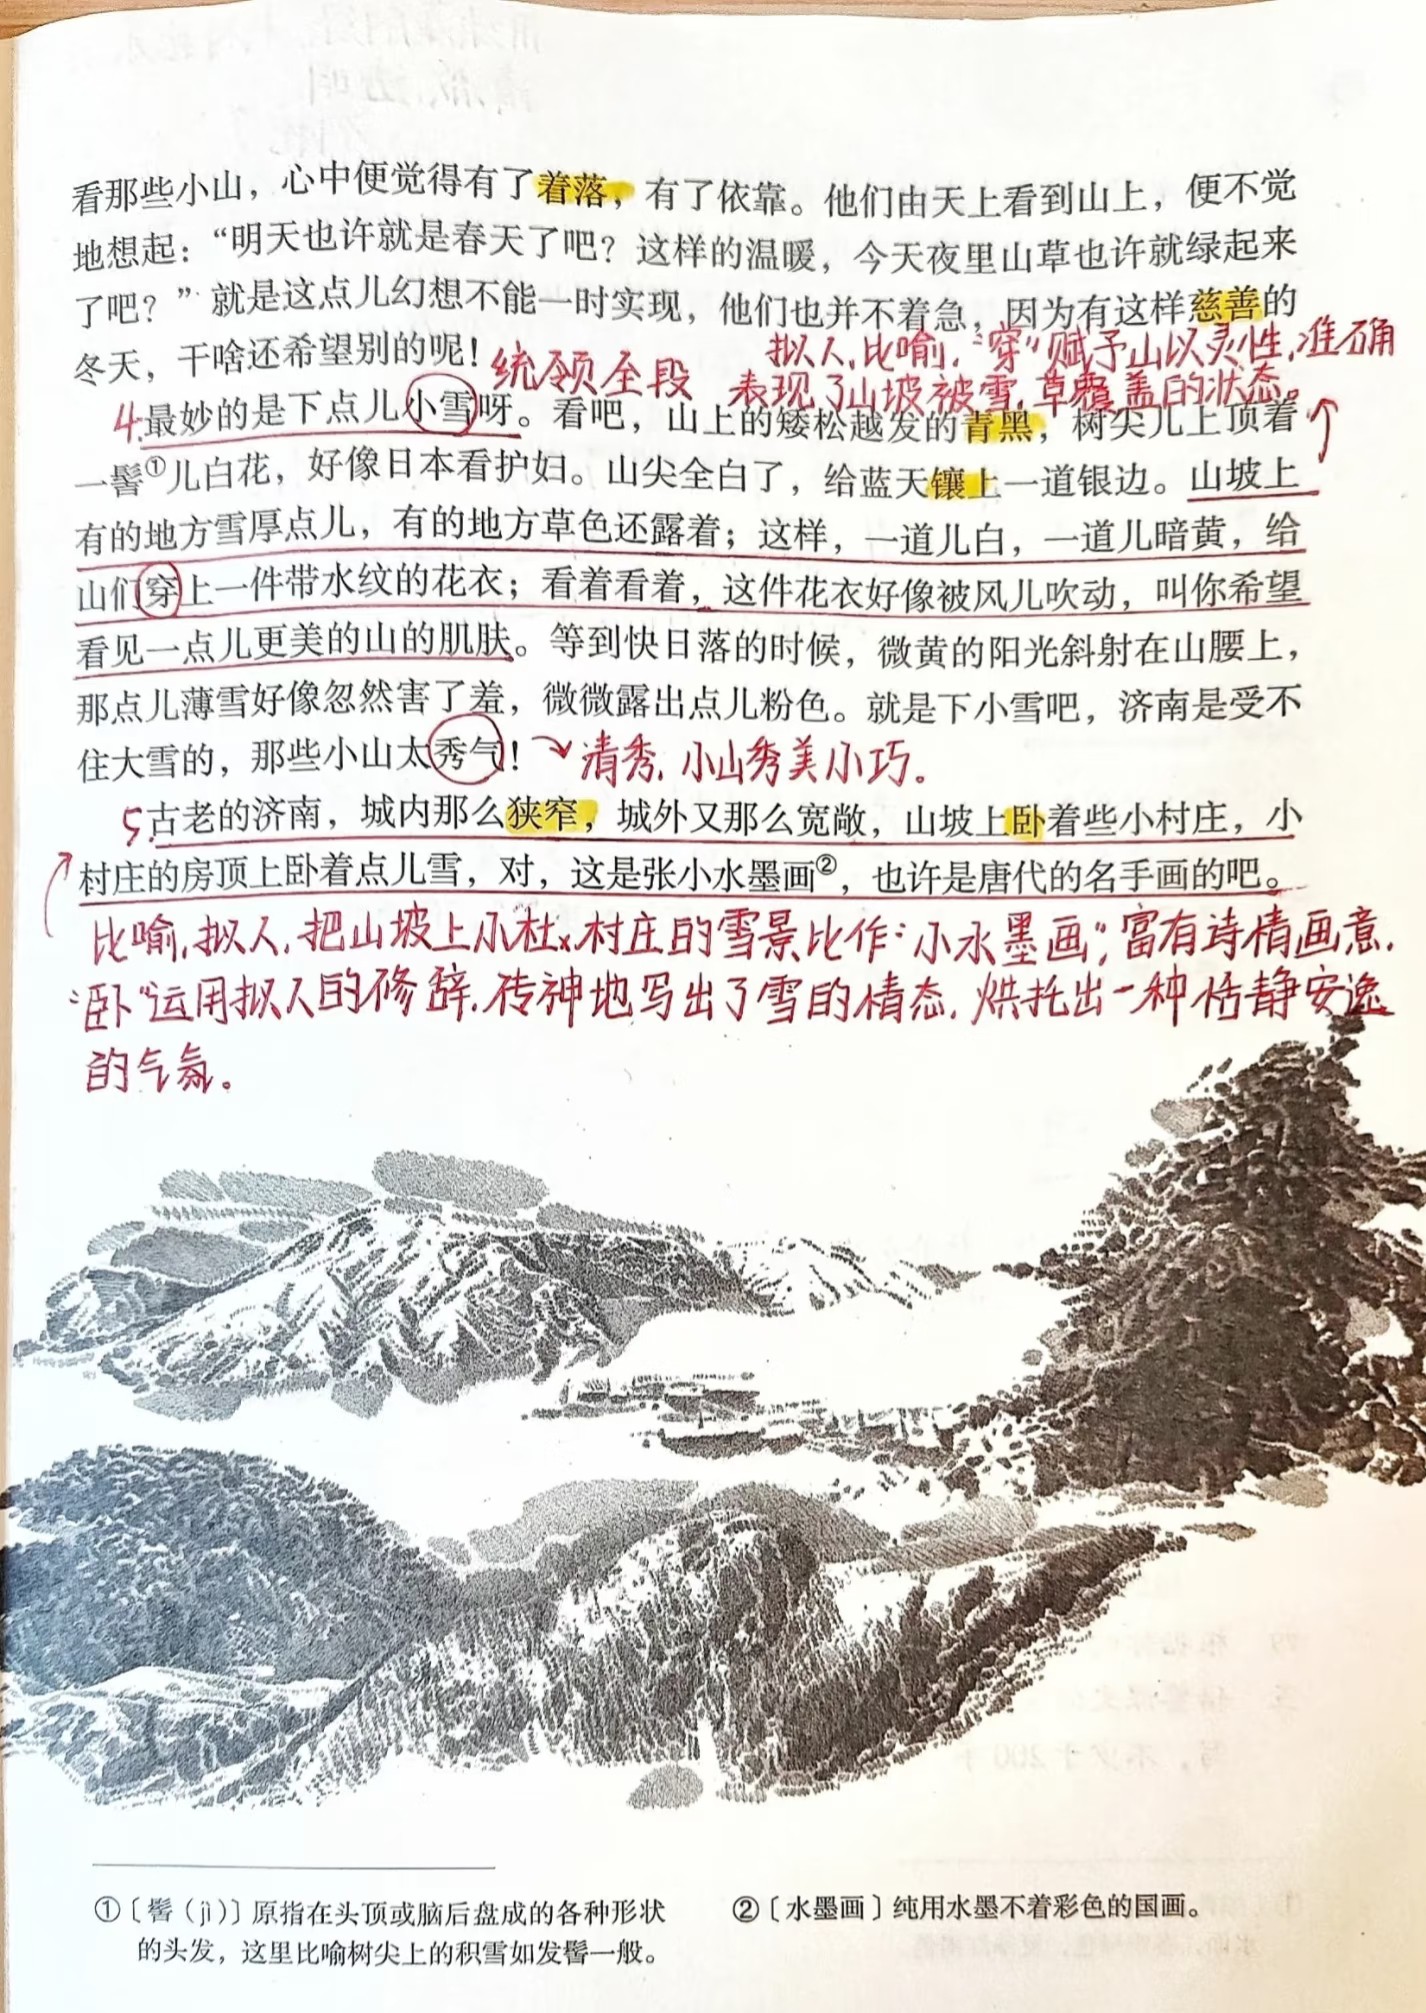 看那些小山，心中便觉得有了着落，有了依靠。他们由天上看到山上，便不觉
地想起：“明天也许就是春天了吧？这样的温暖，今天夜里山草也许就绿起来
了吧？”就是这点儿幻想不能一时实现，他们也并不着急，因为有这样慈善的
冬天，干啥还希望别的呢！
统领全段
拟人，比喻，“穿”赋予山以灵性，准确
表现了山坡被雪，草覆盖的状态。
4.最妙的是下点儿小雪呀。看吧，山上的矮松越发的青黑，树尖儿上顶着
一髻①儿白花，好像日本看护妇。山尖全白了，给蓝天镶上一道银边。山坡上
有的地方雪厚点儿，有的地方草色还露着；这样，一道儿白，一道儿暗黄，给
山们穿上一件带水纹的花衣；看着看着，这件花衣好像被风儿吹动，叫你希望
看见一点儿更美的山的肌肤。等到快日落的时候，微黄的阳光斜射在山腰上，
那点儿薄雪好像忽然害了羞，微微露出点儿粉色。就是下小雪吧，济南是受不
住大雪的，那些小山太秀气！
清秀，小山秀美小巧。
5.古老的济南，城内那么狭窄，城外又那么宽敞，山坡上卧着些小村庄，小
村庄的房顶上卧着点儿雪，对，这是张小水墨画②，也许是唐代的名手画的吧。
比喻，拟人，把山坡上小村庄的雪景比作“小水墨画”，富有诗情画意，
“卧”运用拟人的修辞，传神地写出了雪的情态，烘托出一种恬静安逸
的气氛。
①〔髻（jì）〕原指在头顶或脑后盘成的各种形状
的头发，这里比喻树尖上的积雪如发髻一般。
②〔水墨画〕纯用水墨不着彩色的国画。